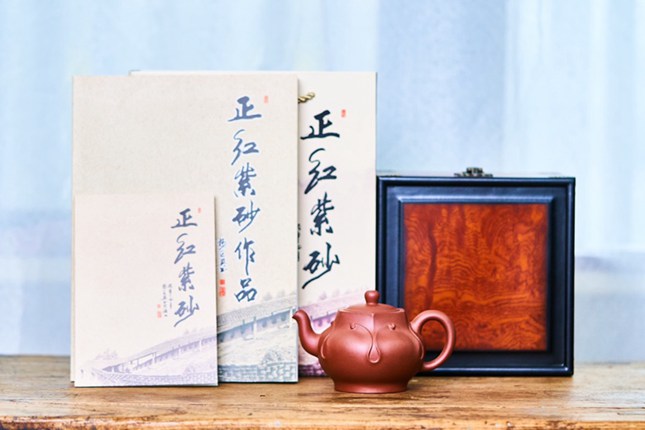 正红紫砂
正红紫砂作品
正红紫砂